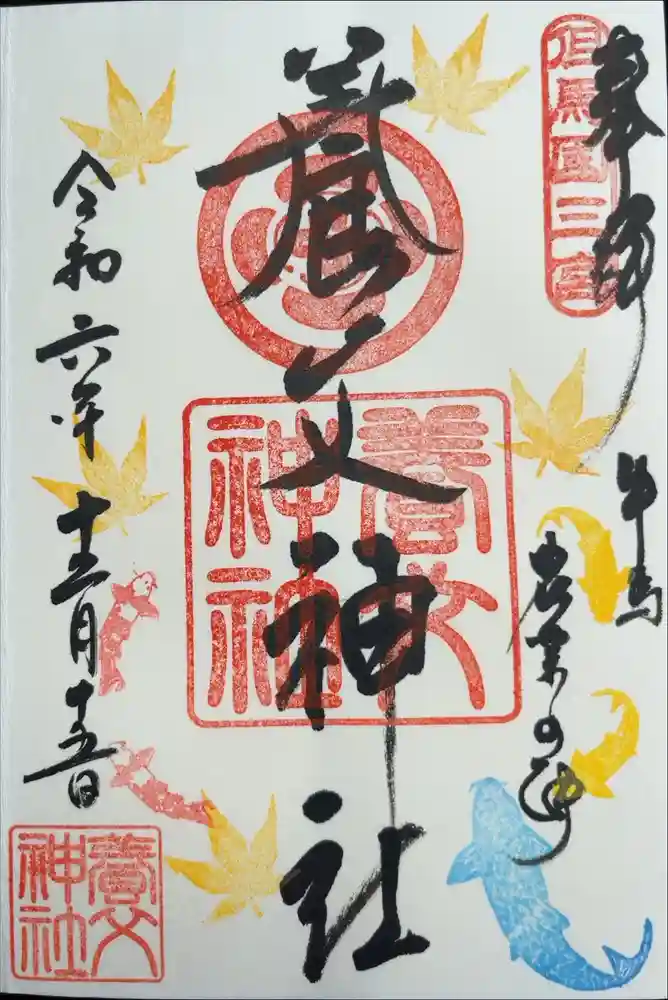 奉拝
但馬國三宮
牛馬
農業の神
養父神社
養父神社
令和六年十二月十五日
養父神社